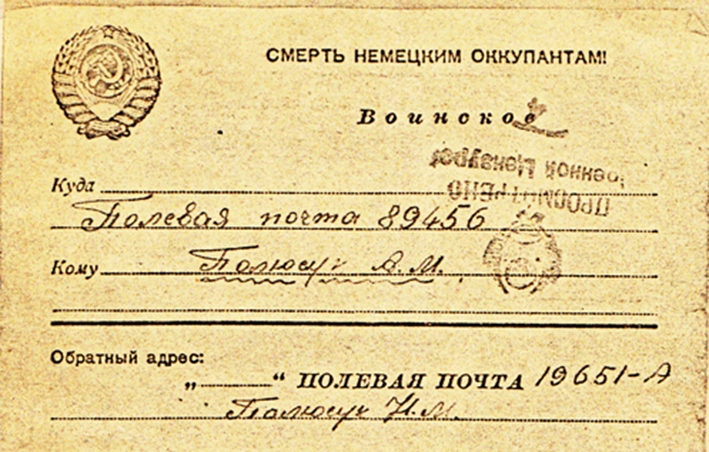 СМЕРТЬ НЕМЕЦКИМ ОККУПАНТАМ!
Воинское
Военной Цензурой
ПРОСМОТРЕНО
Куда
Полевая почта 89456
Кому Полюсук А. М.
Обратный адрес:
„ “ ПОЛЕВАЯ ПОЧТА 19651-А
Полюсук И. М.